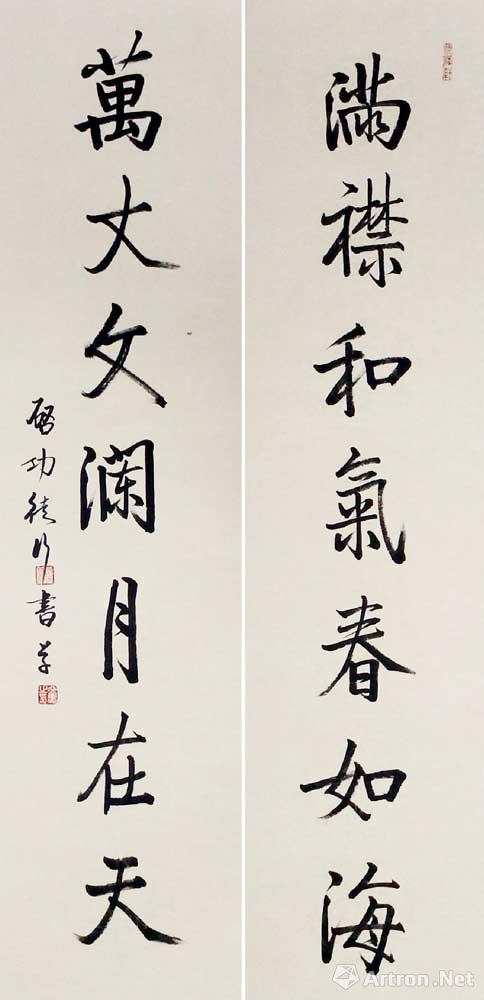 滿襟和氣春如海
萬丈文瀾月在天
啟功 書
Artron.Net